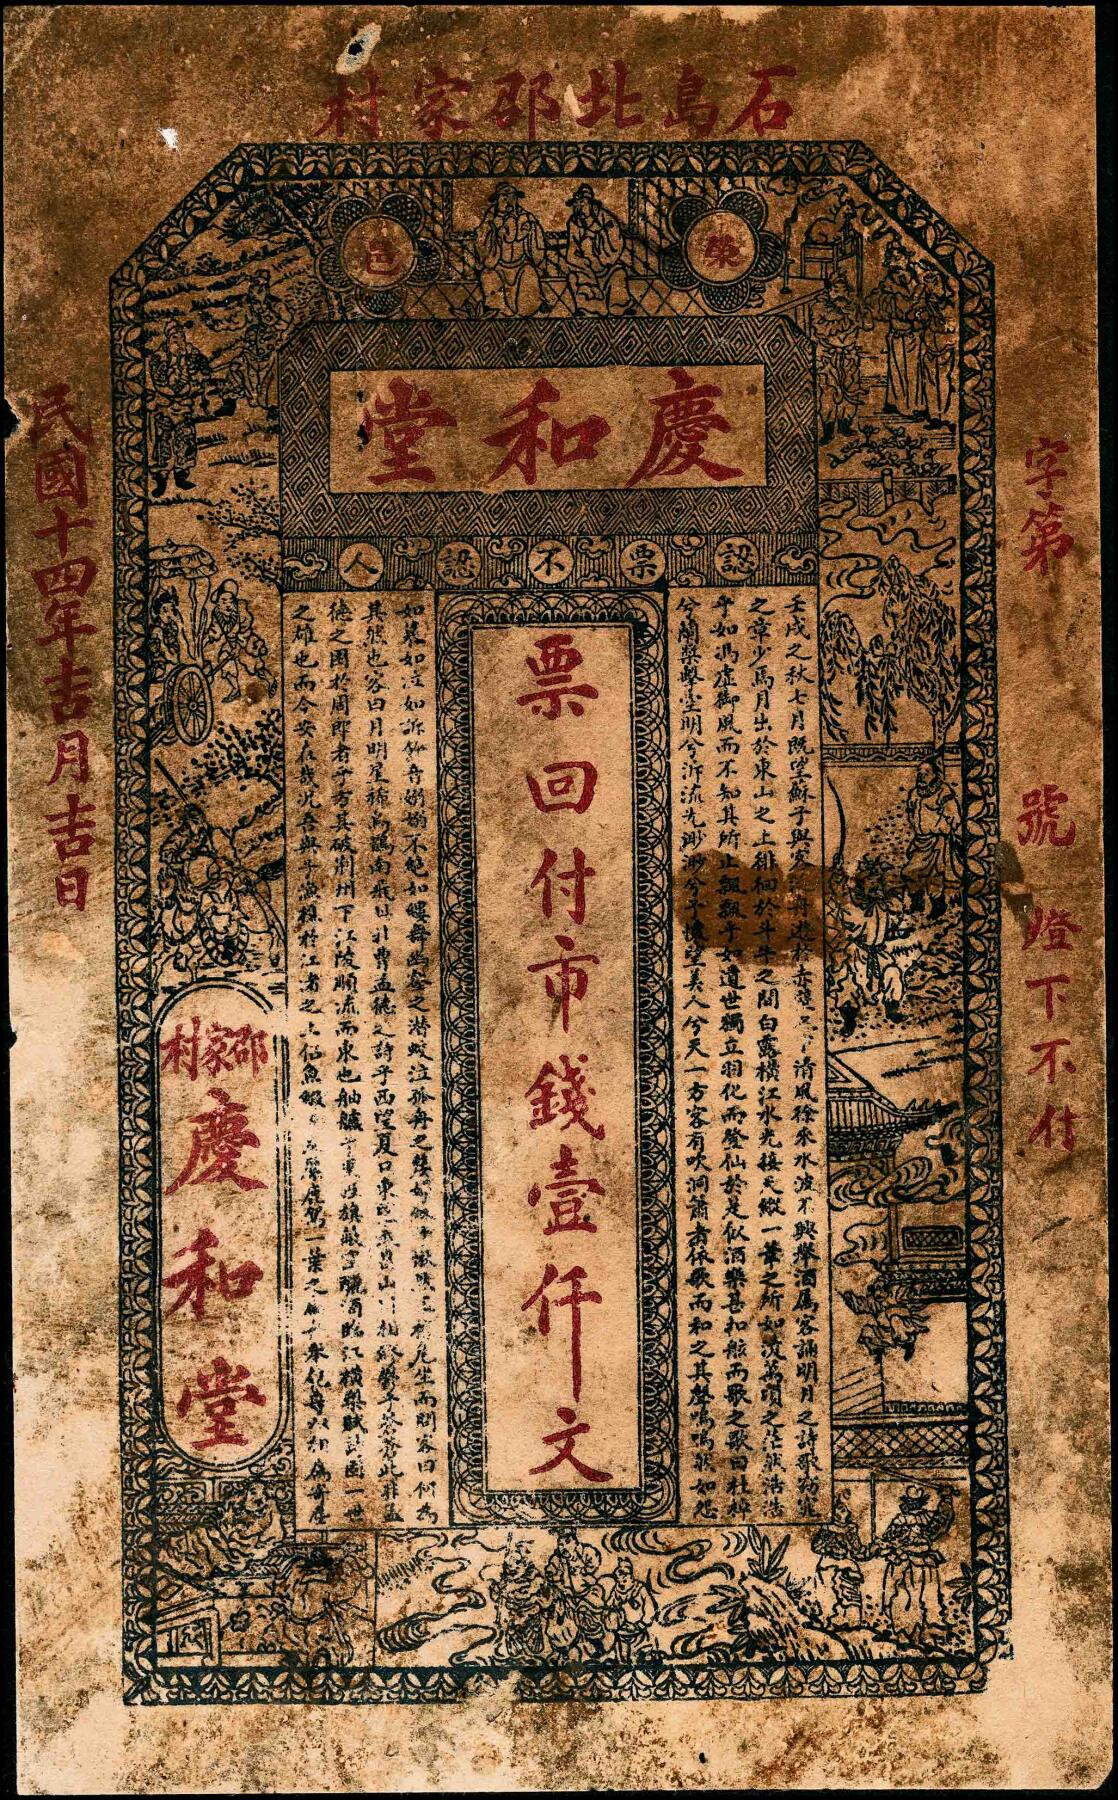 石島北邵家村
榮邑
慶和堂
認票不認人
字第 號 燈下不付
壬戌之秋七月既望蘇子與客舟遊於赤壁 清風徐來水波不興舉酒屬客誦明月之詩歌窈窕
之章少焉月出於東山之上徘徊於斗牛之間白露橫江水光接天縱一葦之所如凌萬頃之茫然浩浩
乎如馮虛御風而不知其所止飄飄乎如遺世獨立羽化而登仙於是飲酒樂甚扣舷而歌之歌曰桂棹
兮蘭槳擊空明兮泝流光渺渺兮予懷望美人兮天一方客有吹洞簫者依歌而和之其聲嗚嗚然如怨
票回付市錢壹仟文
如慕如泣如訴餘音嫋嫋不絕如縷舞幽壑之潛蛟泣孤舟之嫠婦蘇子愀然 襟危坐而問客曰何為
其然也客曰月明星稀烏鵲南飛此非曹孟德之詩乎西望夏口東望武昌山川相繆鬱乎蒼蒼此非孟
德之困於周郎者乎方其破荊州下江陵順流而東也舳艫千里旌旗蔽空釃酒臨江橫槊賦詩固一世
之雄也而今安在哉況吾與子漁樵於江渚之上侶魚蝦 友麋鹿駕一葉之扁舟舉匏樽以相屬寄
邵家村
慶和堂
民國十四年吉月吉日